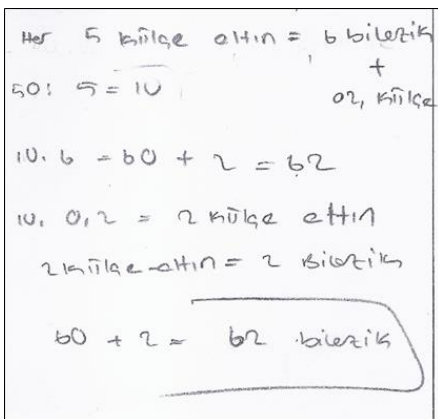 Her 5 külçe altın = 6 bilezik
+
50: 5 = 10
02, külçe
10. 6 = 60 + 2 = 62
10. 0,2 = 2 külçe altın
2 külçe altın = 2 Bilezik
60 + 2 = 62 bilezik